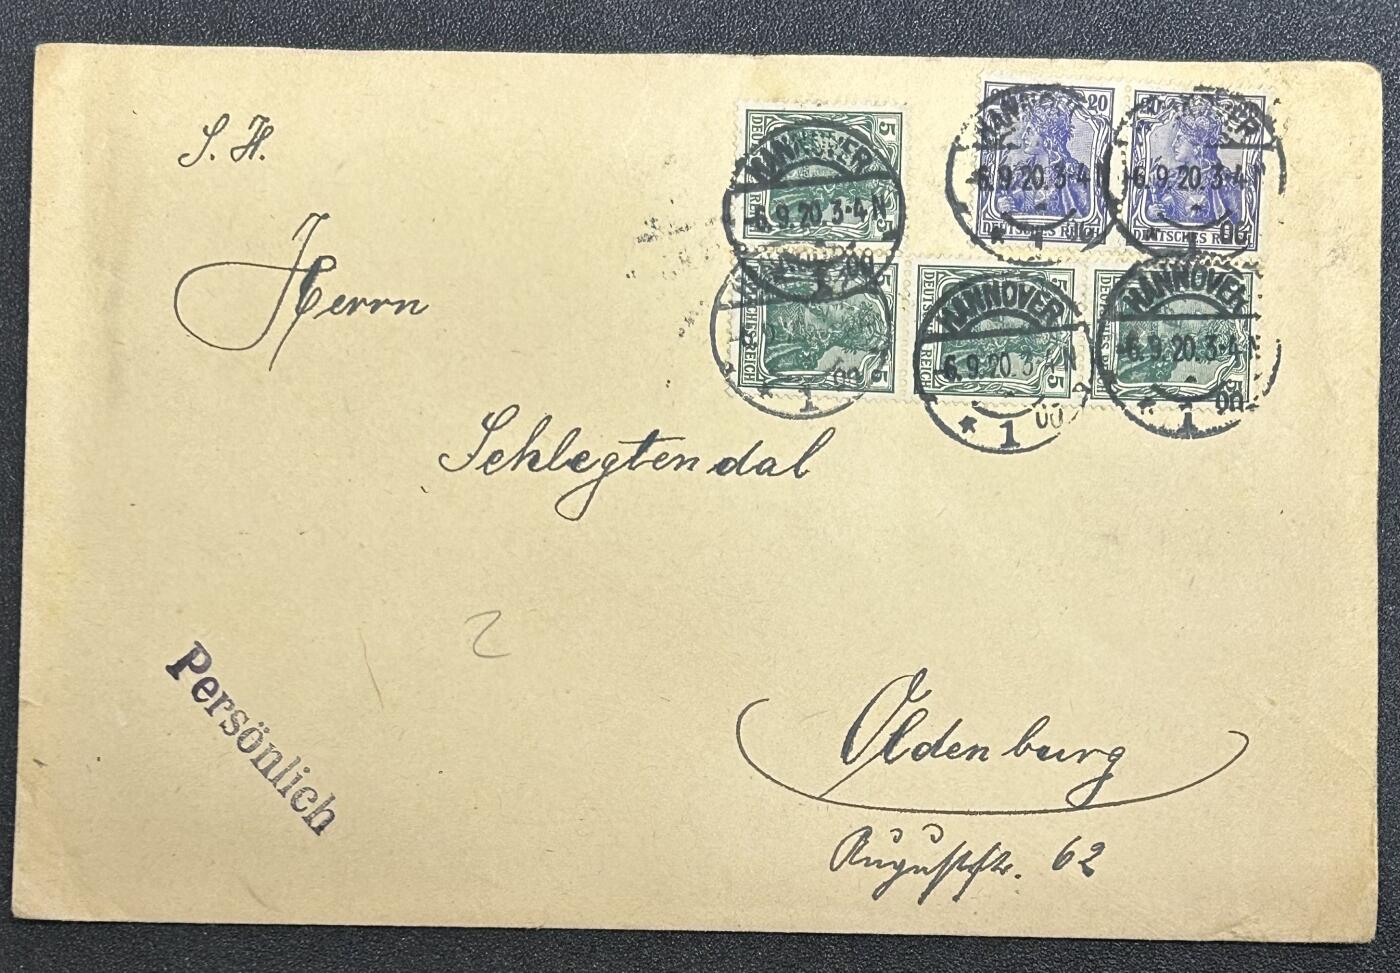 S. H.
Herrn
Schlegtendal
Oldenburg
Auguststr. 62
Persönlich
2
5
DEUTSCHES REICH
5
HANNOVER
-6.9.20.3-4N
* 1 00
20
DEUTSCHES REICH
HANNOVER
-6.9.20.3-4N
* 1 00
20
DEUTSCHES REICH
HANNOVER
-6.9.20.3-4N
* 1 00
5
DEUTSCHES REICH
5
* 1 00
5
DEUTSCHES REICH
5
HANNOVER
-6.9.20.3-4N
* 1 00
DEUTSCHES REICH
5
HANNOVER
-6.9.20.3-4N
* 1 00